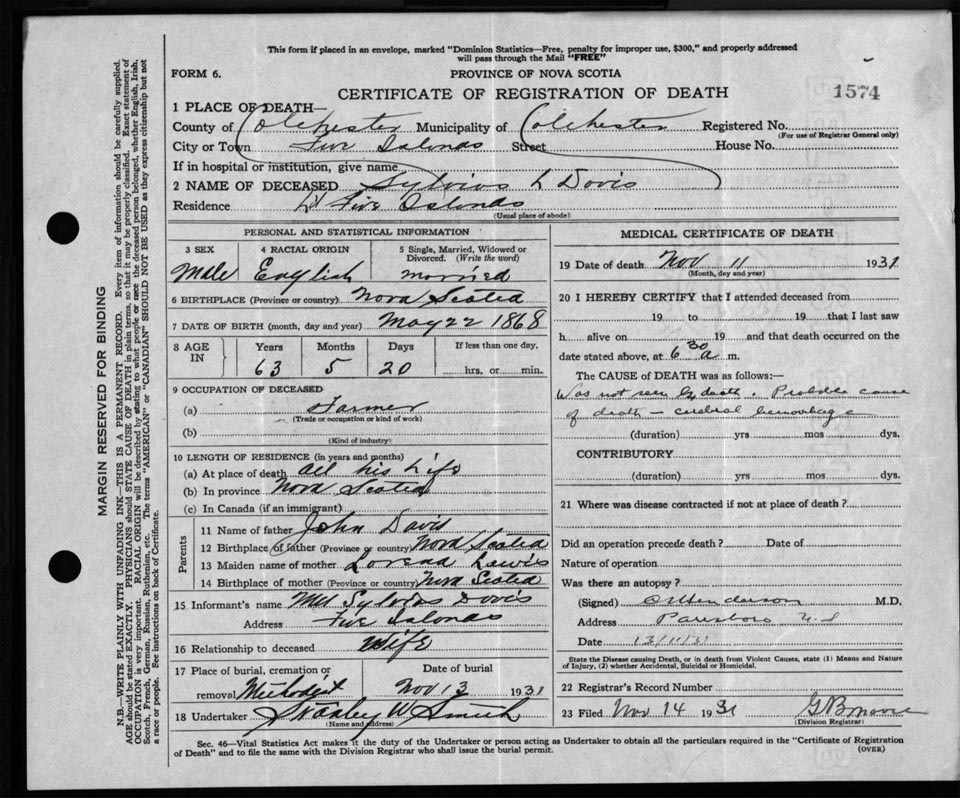 This form if placed in an envelope, marked "Dominion Statistics—Free, penalty for improper use, $300," and properly addressed
will pass through the Mail "FREE"
FORM 6.
PROVINCE OF NOVA SCOTIA
CERTIFICATE OF REGISTRATION OF DEATH
1574
1 PLACE OF DEATH—
County of Colchester Municipality of Colchester Registered No.
(For use of Registrar General only)
City or Town Five Islands Street House No.
If in hospital or institution, give name
2 NAME OF DECEASED Sylvios L Davis
Residence Five Islands
(Usual place of abode)
PERSONAL AND STATISTICAL INFORMATION
3 SEX 4 RACIAL ORIGIN 5 Single, Married, Widowed or
Divorced. (Write the word)
Male English married
6 BIRTHPLACE (Province or country) Nova Scotia
7 DATE OF BIRTH (month, day and year) May 22 1868
8 AGE IN Years Months Days If less than one day,
63 5 20 hrs. or min.
9 OCCUPATION OF DECEASED
(a) Farmer
(Trade or occupation or kind of work)
(b)
(Kind of industry)
10 LENGTH OF RESIDENCE (in years and months)
(a) At place of death all his Life
(b) In province Nova Scotia
(c) In Canada (if an immigrant)
Parents
11 Name of father John Davis
12 Birthplace of father (Province or country) Nova Scotia
13 Maiden name of mother Lorena Lewis
14 Birthplace of mother (Province or country) Nova Scotia
15 Informant's name Mrs Sylvios Davis
Address Five Islands
16 Relationship to deceased Wife
17 Place of burial, cremation or Date of burial
removal Methodist Nov 13 1931
18 Undertaker Stanley W Smith
(Name and address)
MEDICAL CERTIFICATE OF DEATH
19 Date of death Nov 11 1931
(Month, day and year)
20 I HEREBY CERTIFY that I attended deceased from
19 to 19 that I last saw
h alive on 19 and that death occurred on the
date stated above, at 6 30 a m.
The CAUSE OF DEATH was as follows:—
Was not seen by death. Probable cause
of death — cerebral hemorrhage
(duration) yrs mos dys.
CONTRIBUTORY
(duration) yrs mos dys.
21 Where was disease contracted if not at place of death?
Did an operation precede death? Date of
Nature of operation
Was there an autopsy?
(Signed) Henderson M.D.
Address Parrsboro N.S
Date 13/11/31
State the Disease causing Death, or in death from Violent Causes, state (1) Means and Nature
of Injury, (2) whether Accidental, Suicidal or Homicidal.
22 Registrar's Record Number
23 Filed Nov 14 1931 G B Moore
(Division Registrar)
Sec. 46—Vital Statistics Act makes it the duty of the Undertaker or person acting as Undertaker to obtain all the particulars required in the "Certificate of Registration
of Death" and to file the same with the Division Registrar who shall issue the burial permit.
(OVER)
MARGIN RESERVED FOR BINDING
N.B.—WRITE PLAINLY WITH UNFADING INK—THIS IS A PERMANENT RECORD. Every item of information should be carefully supplied.
AGE should be stated EXACTLY. PHYSICIANS should STATE CAUSE OF DEATH in plain terms, so that it may be properly classified. Exact statement of
OCCUPATION is very important. RACIAL ORIGIN will be described by stating to what people or race the deceased person belonged, whether English, Irish,
Scotch, French, German, Russian, Ruthenian, etc. The terms "AMERICAN" or "CANADIAN" SHOULD NOT BE USED as they express citizenship but not
a race or people. See instructions on back of Certificate.